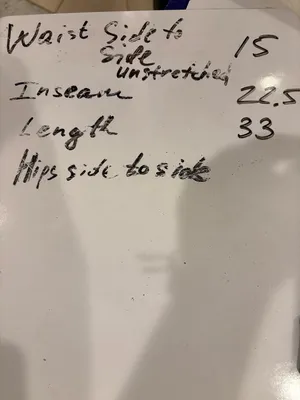 Waist Side to
Side 15
unstretched
Inseam 22.5
Length 33
Hips side to side